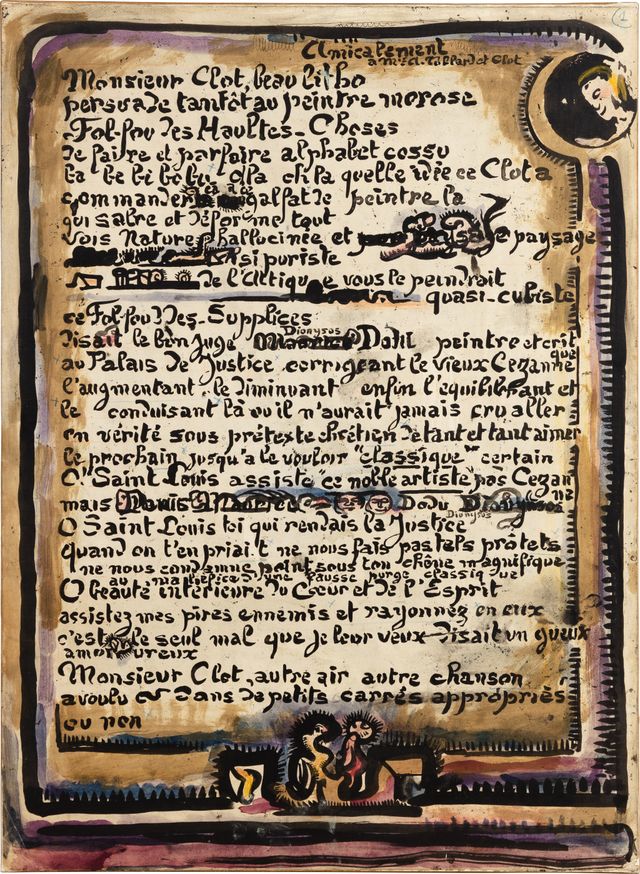 Amicalement
à Mrs A. Vollard et Clot
Monsieur Clot, beau litho
persuade tantôt au peintre morose
Fol-fou des Haultes-Choses
de faire et parfaire alphabet cossu
ba be bi bo bu. Olla oh la quelle idée ce Clot a
commander à ce galfat de peintre la
qui sabre et déforme tout
vois Nature hallucinée et paysage
si puriste
de l'Attique vous le peindrait
quasi-cubiste
ce Fol-fou des-Supplices
Dionysos
disait le bon juge Dodu peintre et crit
au Palais de Justice corrigeant le vieux Cezanne que
l'augmentant, le diminuant enfin l'équilibrant et
le conduisant là où il n'aurait jamais cru aller
en vérité sous prétexte chrétien de tant et tant aimer
le prochain jusqu'à le vouloir "classique" certain
O "Saint Louis assiste "ce noble artiste" pas Cezanne
mais Dodu
Dionysos
O Saint Louis toi qui rendais la Justice
quand on t'en priait ne nous fais pas tels prôtets
ne nous condamne point sous ton chêne magnifique
au maléfice d'une fausse purge classique
O beauté intérieure du Cœur et de l'Esprit
assistez mes pires ennemis et rayonnez en eux
c'est le seul mal que je leur veux disait un gueux
amoureux
Monsieur Clot, autre air autre chanson
a voulu dans de petits carrés appropriés
ou non